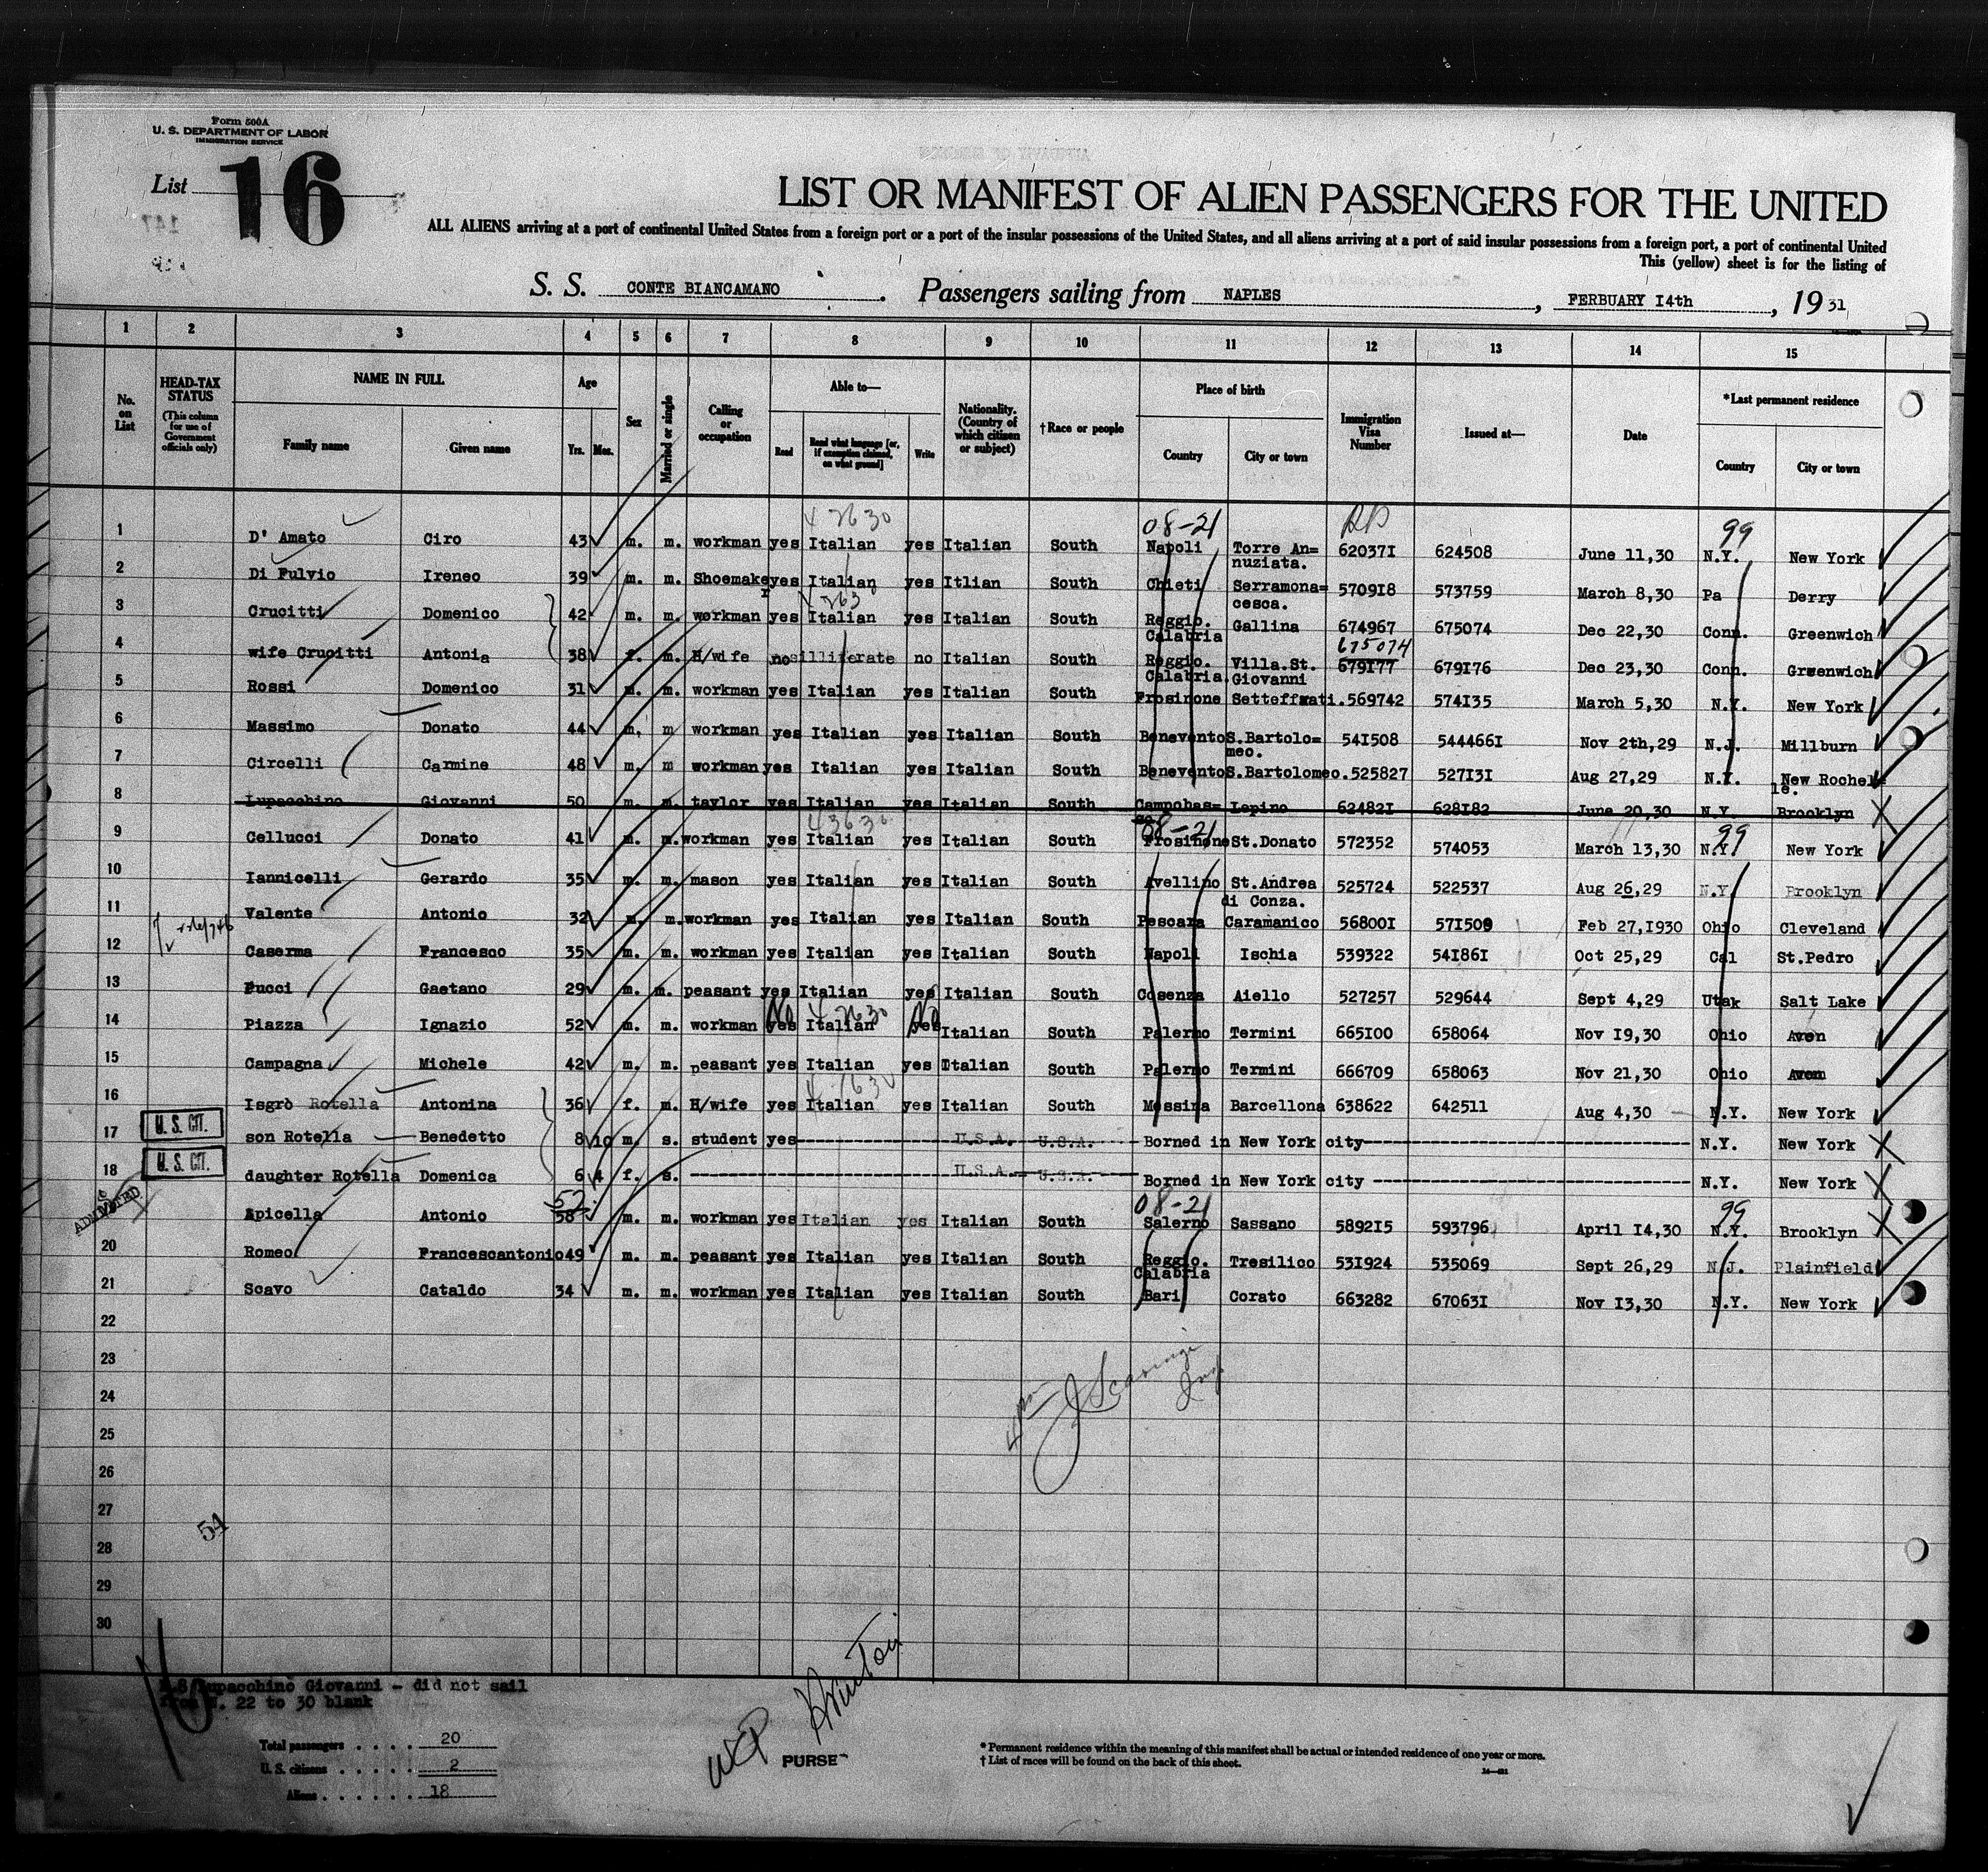 Form 500A
U. S. DEPARTMENT OF LABOR
IMMIGRATION SERVICE
List 16
LIST OR MANIFEST OF ALIEN PASSENGERS FOR THE UNITED
ALL ALIENS arriving at a port of continental United States from a foreign port or a port of the insular possessions of the United States, and all aliens arriving at a port of said insular possessions from a foreign port, a port of continental United
This (yellow) sheet is for the listing of
S. S. CONTE BIANCAMANO. Passengers sailing from NAPLES, FERBUARY I4th, 19 31
1 2 3 4 5 6 7 8 9 10 11 12 13 14 15
No. on List
HEAD-TAX STATUS (This column for use of Government officials only)
NAME IN FULL Family name Given name
Age Yrs. Mos.
Sex
Married or single
Calling or occupation
Able to— Read Read what language [or, if exemption claimed, on what ground] Write
Nationality. (Country of which citizen or subject)
†Race or people
Place of birth Country City or town
Immigration Visa Number
Issued at—
Date
*Last permanent residence Country City or town
08-21 99
1 D' Amato Ciro 43 m. m. workman yes Italian yes Italian South Napoli Torre An= nuziata. 62037I 624508 June II,30 N.Y. New York
2 Di Fulvio Ireneo 39 m. m. Shoemaker yes Italian yes Itlian South Chieti Serramona= cesca. 5709I8 573759 March 8,30 Pa Derry
3 Crucitti Domenico 42 m. m. workman yes Italian yes Italian South Reggio. Calabria Gallina 674967 675074 Dec 22,30 Conn. Greenwich
675074
4 wife Crucitti Antonia 38 f. m. H/wife no illiterate no Italian South Reggio. Calabria. Villa.St. Giovanni 679I77 679I76 Dec 23,30 Conn. Greenwich
5 Rossi Domenico 3I m. m. workman yes Italian yes Italian South Frosinone Setteffrati. 569742 574I35 March 5,30 N.Y. New York
6 Massimo Donato 44 m. m workman yes Italian yes Italian South Benevento S.Bartolo= meo. 54I508 544466I Nov 2th,29 N.J. Millburn
7 Circelli Carmine 48 m. m workman yes Italian yes Italian South Benevento S.Bartolomeo. 525827 527I3I Aug 27,29 N.Y. New Rochel= le.
8 Lupacchino Giovanni 50 m. m. taylor yes Italian yes Italian South Campobas= so Lepino 62482I 628I82 June 20,30 N.Y. Brooklyn
08-21 99
9 Cellucci Donato 4I m. m. workman yes Italian yes Italian South Frosinone St.Donato 572352 574053 March I3,30 N.Y. New York
10 Iannicelli Gerardo 35 m. m. mason yes Italian yes Italian South Avellino St.Andrea di Conza. 525724 522537 Aug 26,29 N.Y. Brooklyn
11 Valente Antonio 32 m. m. workman yes Italian yes Italian South Pescara Caramanico 56800I 57I509 Feb 27,I930 Ohio Cleveland
12 Caserma Francesco 35 m. m. workman yes Italian yes Italian South Napoli Ischia 539322 54I86I Oct 25,29 Cal St.Pedro
13 Pucci Gaetano 29 m. m. peasant yes Italian yes Italian South Cosenza Aiello 527257 529644 Sept 4,29 Utak Salt Lake
14 Piazza Ignazio 52 m. m. workman yes No Italian No Italian South Palermo Termini 665I00 658064 Nov I9,30 Ohio Aven
15 Campagna Michele 42 m. m. peasant yes Italian yes Italian South Palermo Termini 666709 658063 Nov 2I,30 Ohio Aven
16 Isgrò Rotella Antonina 36 f. m. H/wife yes Italian yes Italian South Messina Barcellona 638622 6425II Aug 4,30 N.Y. New York
17 U. S. CIT. son Rotella Benedetto 8 10 m. s. student yes U.S.A. U.S.A. Borned in New York city N.Y. New York
18 U. S. CIT. daughter Rotella Domenica 6 4 f. s. U.S.A. U.S.A. Borned in New York city N.Y. New York
52 08-21 99
ADMITTED Apicella Antonio 58 m. m. workman yes Italian yes Italian South Salerno Sassano 5892I5 593796 April I4,30 N.Y. Brooklyn
20 Romeo Francescantonio 49 m. m. peasant yes Italian yes Italian South Reggio. Calabria Tresilico 53I924 535069 Sept 26,29 N.J. Plainfield
21 Scavo Cataldo 34 m. m. workman yes Italian yes Italian South Bari Corato 663282 67063I Nov I3,30 N.Y. New York
22
23
24
25
26
27
54
28
29
30
Lupacchino Giovanni - did not sail
from N. 22 to 30 blank
Total passengers . . . . 20
U. S. citizens . . . . . 2
Aliens . . . . . . 18
PURSE
* Permanent residence within the meaning of this manifest shall be actual or intended residence of one year or more.
† List of races will be found on the back of this sheet.